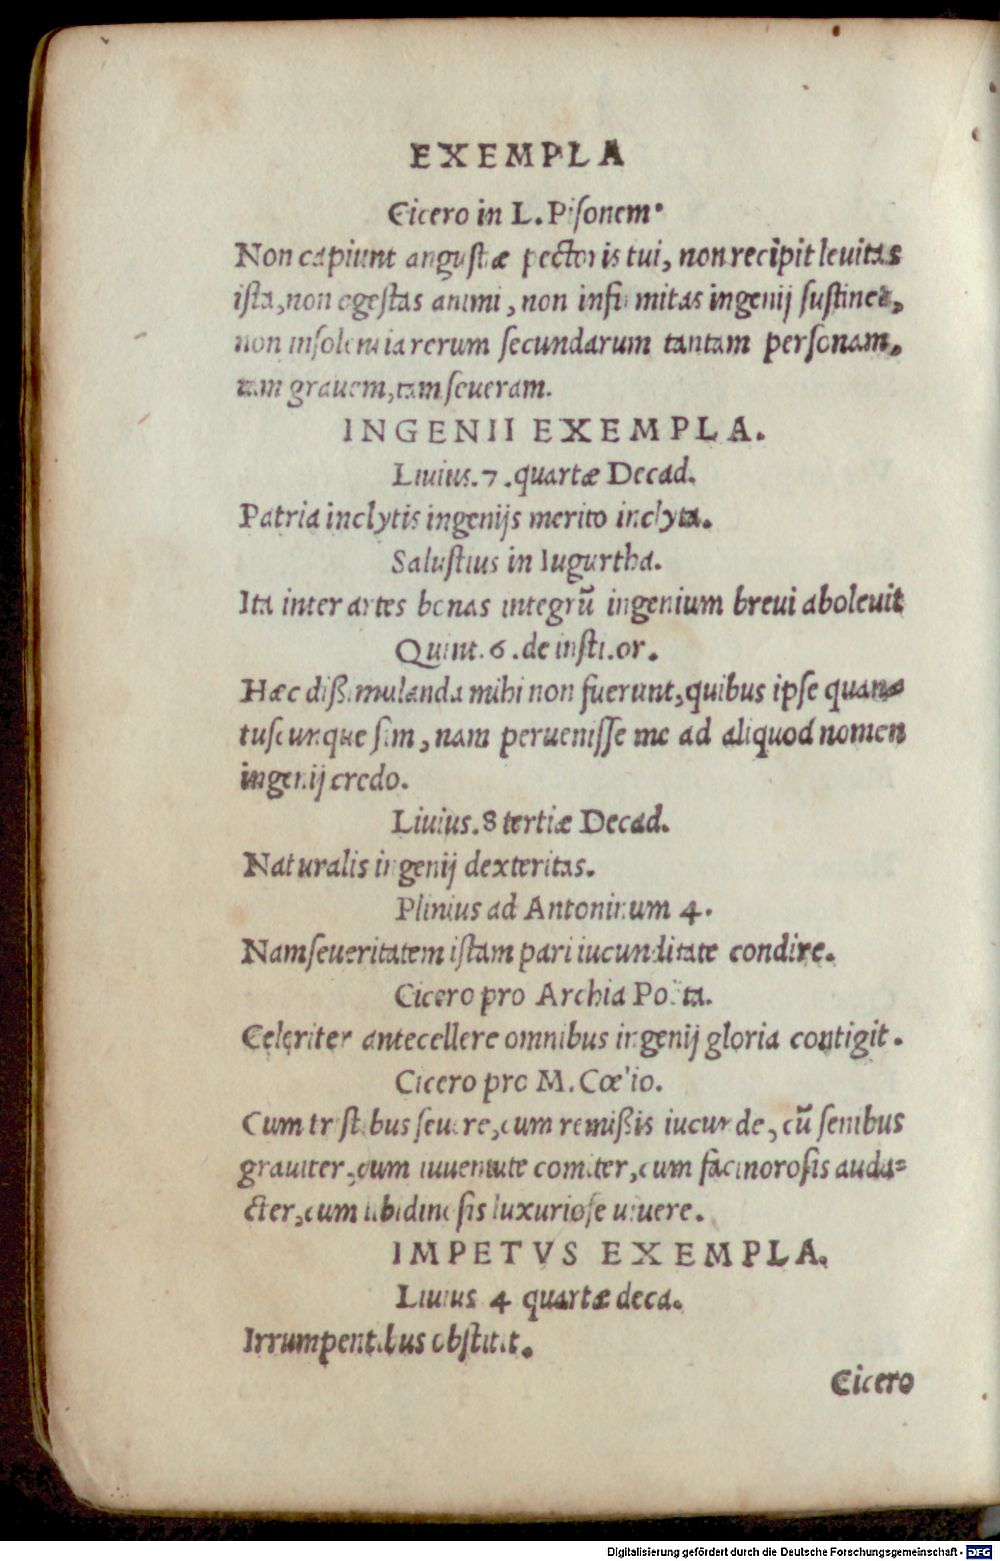 EXEMPLA
Cicero in L. Pisonem.
Non capiunt angustæ pectoris tui, non recipit leuitas
ista, non egestas animi, non infirmitas ingenij sustinet,
non insolentia rerum secundarum tantam personam,
tam grauem, tam seueram.
INGENII EXEMPLA.
Liuius. 7. quartæ Decad.
Patria inclytis ingenijs merito inclyta.
Salustius in Iugurtha.
Ita inter artes bonas integrũ ingenium breui aboleuit
Quint. 6. de insti. or.
Hæc dißimulanda mihi non fuerunt, quibus ipse quan=
tuscunque sim, nam peruenisse me ad aliquod nomen
ingenij credo.
Liuius. 8 tertiæ Decad.
Naturalis ingenij dexteritas.
Plinius ad Antoninum 4.
Nam seueritatem istam pari iucunditate condire.
Cicero pro Archia Poeta.
Celeriter antecellere omnibus ingenij gloria contigit.
Cicero pro M. Cœlio.
Cum tristibus seuere, cum remißis iucunde, cũ senibus
grauiter, cum iuuentute comiter, cum facinorosis auda=
cter, cum libidinosis luxuriose uiuere.
IMPETVS EXEMPLA.
Liuius 4 quartæ deca.
Irrumpentibus obstitit.
Cicero
Digitalisierung gefördert durch die Deutsche Forschungsgemeinschaft - DFG